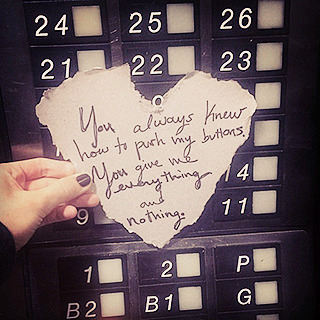 24 25 26
21 22 23
You always knew
how to push my buttons.
You give me
everything
and
nothing.
14
9 11
1 2 P
B2 B1 G